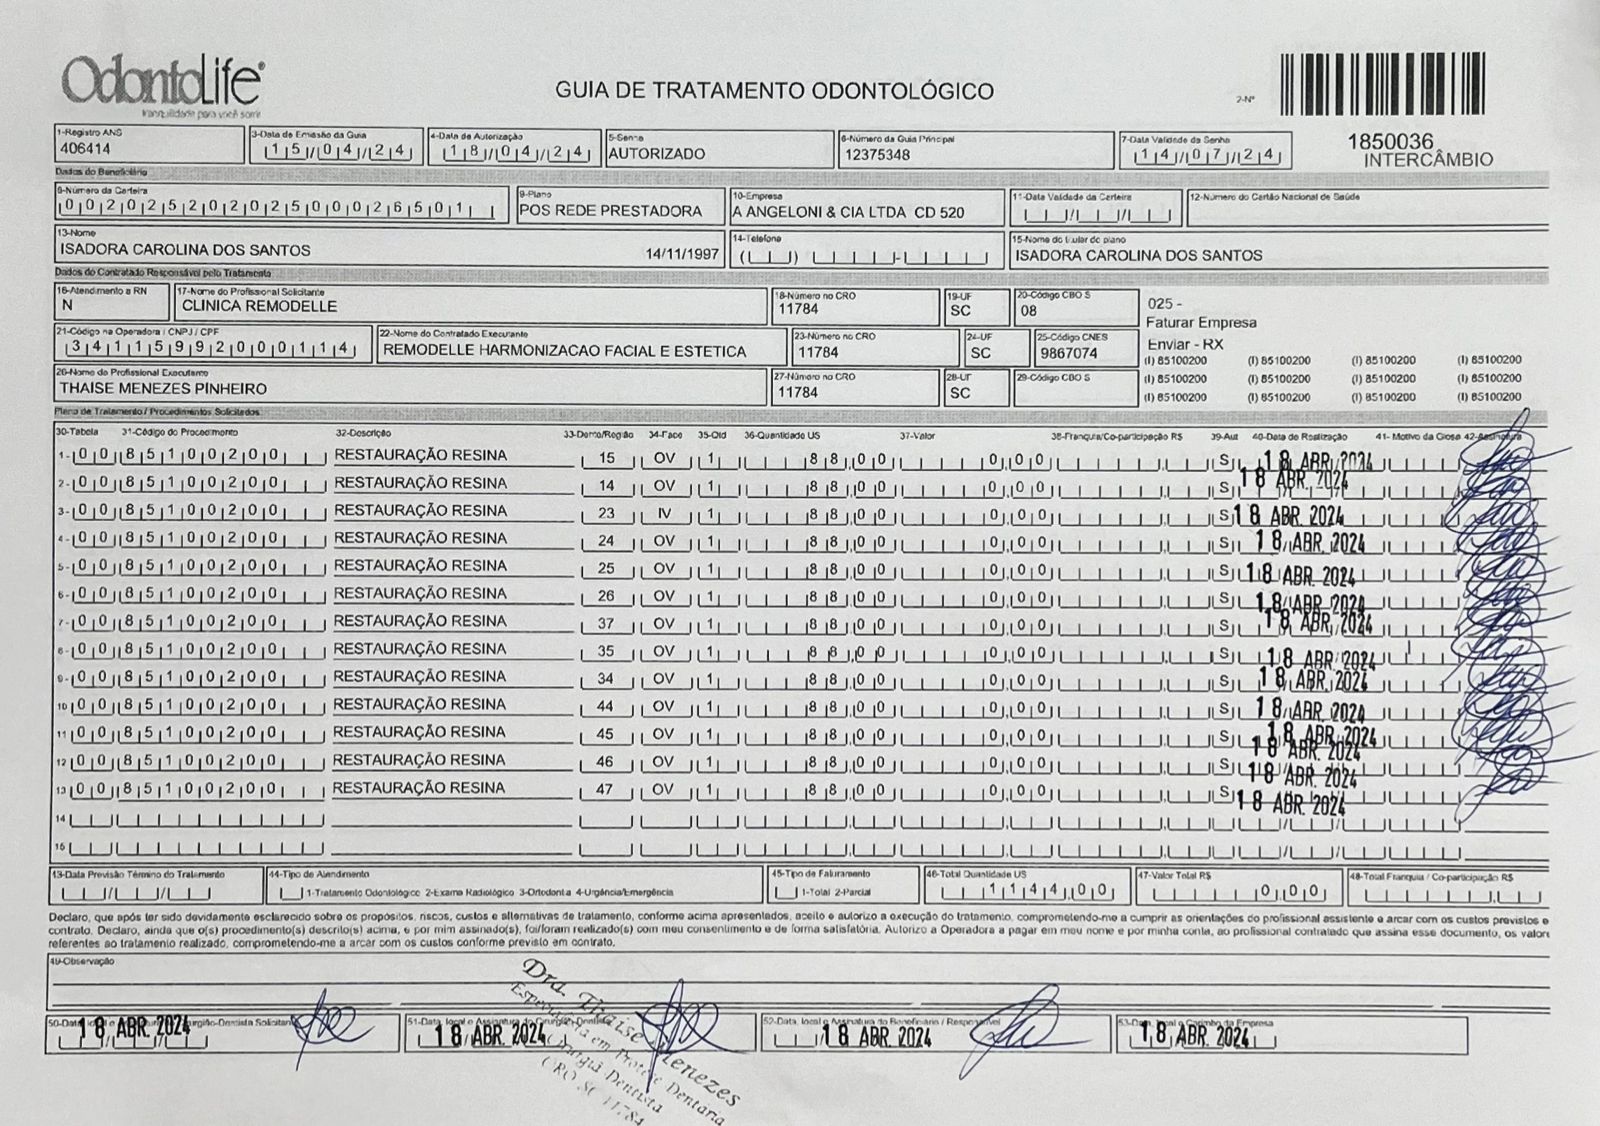 OdontoLife®
tranquilidade para você sorrir
GUIA DE TRATAMENTO ODONTOLÓGICO
2-Nº
1850036
INTERCÂMBIO
1-Registro ANS
406414
3-Data de Emissão da Guia
15/04/24
4-Data de Autorização
18/04/24
5-Senha
AUTORIZADO
6-Número da Guia Principal
12375348
7-Data Validade da Senha
14/07/24
Dados do Beneficiário
8-Número da Carteira
00202520202500026501
9-Plano
POS REDE PRESTADORA
10-Empresa
A ANGELONI & CIA LTDA CD 520
11-Data Validade da Carteira
12-Número do Cartão Nacional de Saúde
13-Nome
ISADORA CAROLINA DOS SANTOS 14/11/1997
14-Telefone
15-Nome do titular do plano
ISADORA CAROLINA DOS SANTOS
Dados do Contratado Responsável pelo Tratamento
16-Atendimento a RN
N
17-Nome do Profissional Solicitante
CLINICA REMODELLE
18-Número no CRO
11784
19-UF
SC
20-Código CBO S
08
025 -
Faturar Empresa
Enviar - RX
(I) 85100200 (I) 85100200 (I) 85100200 (I) 85100200
(I) 85100200 (I) 85100200 (I) 85100200 (I) 85100200
(I) 85100200 (I) 85100200 (I) 85100200 (I) 85100200
21-Código na Operadora / CNPJ / CPF
34115992000114
22-Nome do Contratado Executante
REMODELLE HARMONIZACAO FACIAL E ESTETICA
23-Número no CRO
11784
24-UF
SC
25-Código CNES
9867074
26-Nome do Profissional Executante
THAISE MENEZES PINHEIRO
27-Número no CRO
11784
28-UF
SC
29-Código CBO S
Plano de Tratamento / Procedimentos Solicitados
30-Tabela 31-Código do Procedimento 32-Descrição 33-Dente/Região 34-Face 35-Qtd 36-Quantidade US 37-Valor 38-Franquia/Co-participação R$ 39-Aut 40-Data de Realização 41- Motivo da Glosa 42-Assinatura
1- 00 85100200 RESTAURAÇÃO RESINA 15 OV 1 88,00 0,00 S 18 ABR. 2024
2- 00 85100200 RESTAURAÇÃO RESINA 14 OV 1 88,00 0,00 S 18 ABR. 2024
3- 00 85100200 RESTAURAÇÃO RESINA 23 IV 1 88,00 0,00 S 18 ABR. 2024
4- 00 85100200 RESTAURAÇÃO RESINA 24 OV 1 88,00 0,00 S 18 ABR. 2024
5- 00 85100200 RESTAURAÇÃO RESINA 25 OV 1 88,00 0,00 S 18 ABR. 2024
6- 00 85100200 RESTAURAÇÃO RESINA 26 OV 1 88,00 0,00 S 18 ABR. 2024
7- 00 85100200 RESTAURAÇÃO RESINA 37 OV 1 88,00 0,00 S 18 ABR. 2024
8- 00 85100200 RESTAURAÇÃO RESINA 35 OV 1 88,00 0,00 S 18 ABR. 2024
9- 00 85100200 RESTAURAÇÃO RESINA 34 OV 1 88,00 0,00 S 18 ABR. 2024
10 00 85100200 RESTAURAÇÃO RESINA 44 OV 1 88,00 0,00 S 18 ABR. 2024
11 00 85100200 RESTAURAÇÃO RESINA 45 OV 1 88,00 0,00 S 18 ABR. 2024
18 ABR. 2024
12 00 85100200 RESTAURAÇÃO RESINA 46 OV 1 88,00 0,00 S 18 ABR. 2024
13 00 85100200 RESTAURAÇÃO RESINA 47 OV 1 88,00 0,00 S 18 ABR. 2024
14
15
43-Data Previsão Término do Tratamento
44-Tipo de Atendimento
1-Tratamento Odontológico 2-Exame Radiológico 3-Ortodontia 4-Urgência/Emergência
45-Tipo de Faturamento
1-Total 2-Parcial
46-Total Quantidade US
1144,00
47-Valor Total R$
0,00
48-Total Franquia / Co-participação R$
Declaro, que após ter sido devidamente esclarecido sobre os propósitos, riscos, custos e alternativas de tratamento, conforme acima apresentados, aceito e autorizo a execução do tratamento, comprometendo-me a cumprir as orientações do profissional assistente e arcar com os custos previstos e
contrato. Declaro, ainda que o(s) procedimento(s) descrito(s) acima, e por mim assinado(s), foi/foram realizado(s) com meu consentimento e de forma satisfatória. Autorizo a Operadora a pagar em meu nome e por minha conta, ao profissional contratado que assina esse documento, os valore
referentes ao tratamento realizado, comprometendo-me a arcar com os custos conforme previsto em contrato.
49-Observação
50-Data, local e Cirurgião-Dentista Solicitante
18 ABR. 2024
51-Data, local e Assinatura do Cirurgião-Dentista
18 ABR. 2024
Dra. Thaise Menezes
Especialista em Prótese Dentária
Cirurgiã Dentista
CRO SC 11784
52-Data, local e Assinatura do Beneficiário / Responsável
18 ABR. 2024
53-Data, local e Carimbo da Empresa
18 ABR. 2024